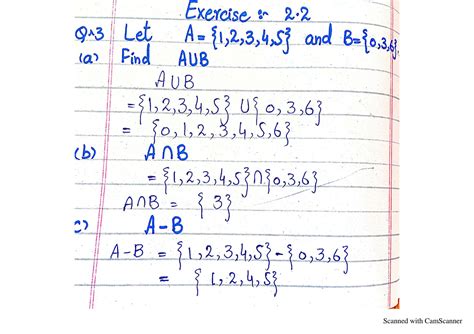 Exercise :- 2.2
Q.3 Let A={1,2,3,4,5} and B={0,3,6}.
(a) Find A∪B
A∪B
={1,2,3,4,5} ∪{0,3,6}
= {0,1,2,3,4,5,6}
(b) A∩B
={1,2,3,4,5}∩{0,3,6}
A∩B = {3}
c) A-B
A-B = {1,2,3,4,5}-{0,3,6}
= {1,2,4,5}
Scanned with CamScanner